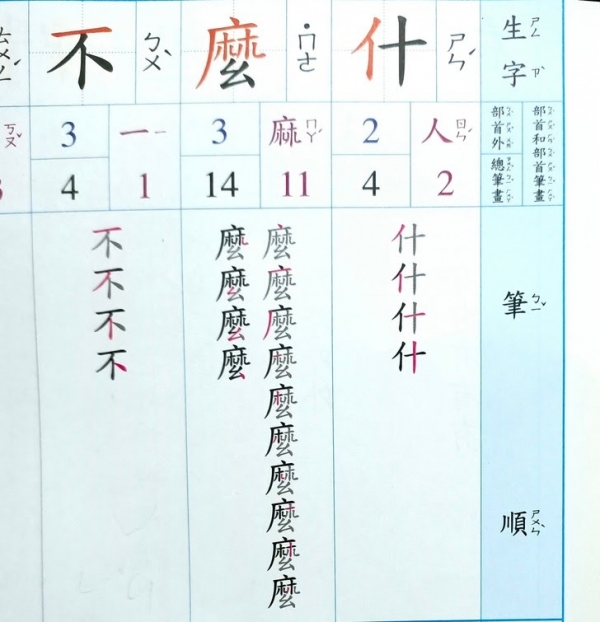 生字 ㄕㄥ ㄗˋ
部首和部首筆畫
部首外
總筆畫
筆順 ㄅㄧˇ ㄕㄨㄣˋ
什 ㄕㄣˊ
人 ㄖㄣˊ
2
2
4
什
什
什
什
麼 ˙ㄇㄜ
麻 ㄇㄚˊ
11
3
14
麼
麼
麼
麼
麼
麼
麼
麼
麼
麼
麼
麼
麼
麼
不 ㄅㄨˋ
一 ㄧ
1
3
4
不
不
不
不